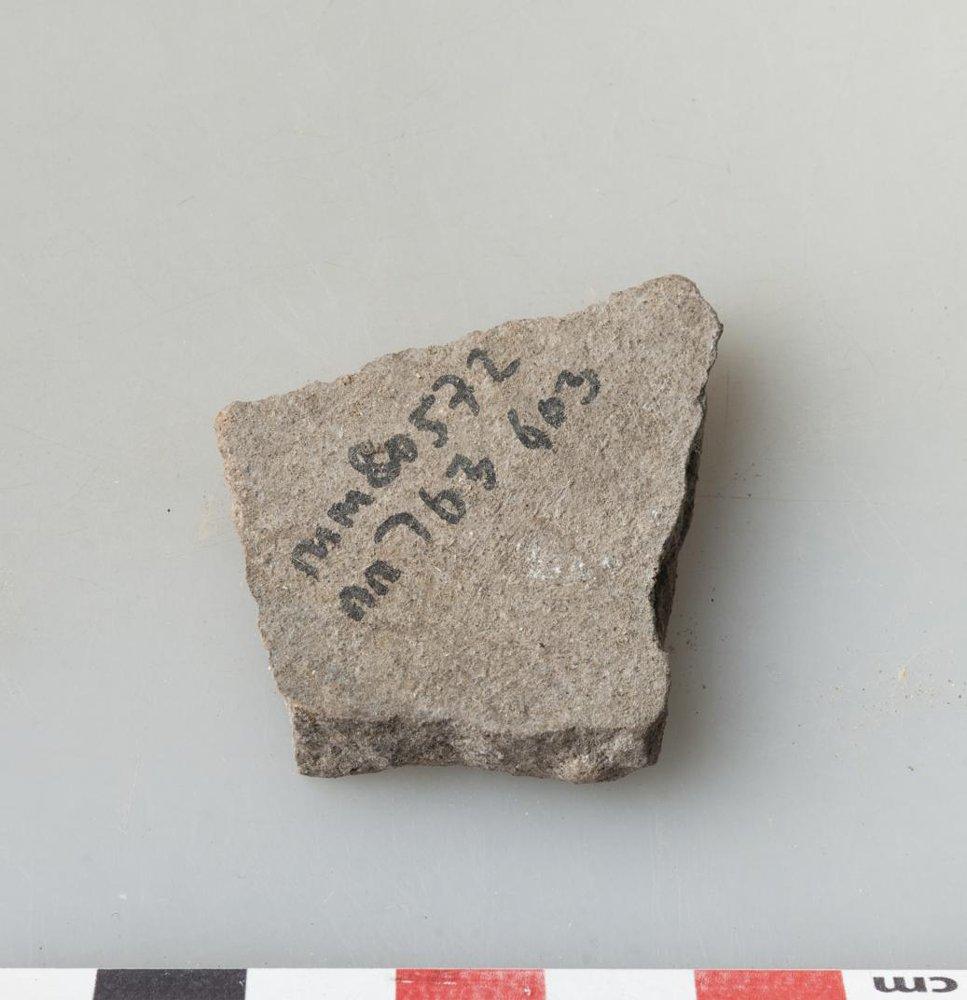 mm80572
nn763 603
cm